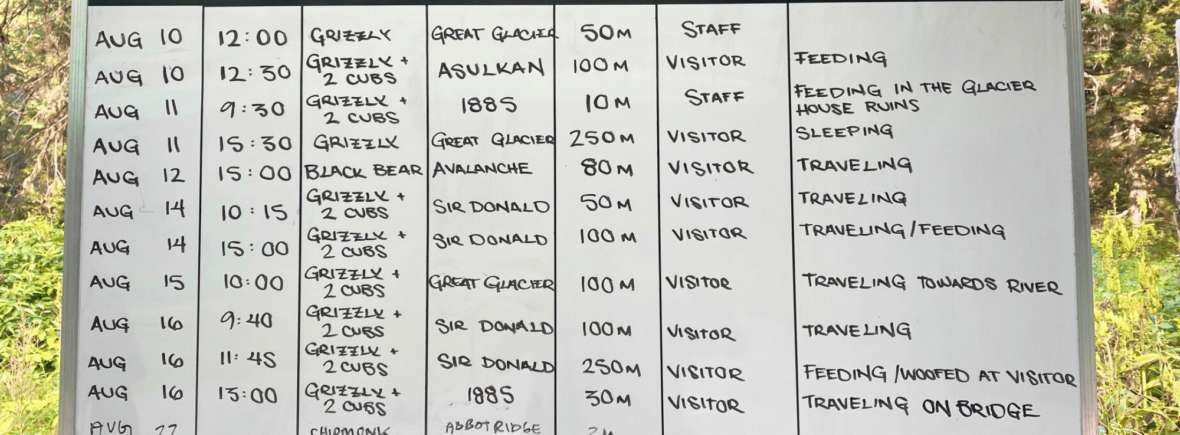 AUG 10 12:00 GRIZZLY GREAT GLACIER 50M STAFF
AUG 10 12:30 GRIZZLY + 2 CUBS ASULKAN 100M VISITOR FEEDING
AUG 11 9:30 GRIZZLY + 2 CUBS 1885 10M STAFF FEEDING IN THE GLACIER HOUSE RUINS
AUG 11 15:30 GRIZZLY GREAT GLACIER 250M VISITOR SLEEPING
AUG 12 15:00 BLACK BEAR AVALANCHE 80M VISITOR TRAVELING
AUG 14 10:15 GRIZZLY + 2 CUBS SIR DONALD 50M VISITOR TRAVELING
AUG 14 15:00 GRIZZLY + 2 CUBS SIR DONALD 100M VISITOR TRAVELING/FEEDING
AUG 15 10:00 GRIZZLY + 2 CUBS GREAT GLACIER 100M VISITOR TRAVELING TOWARDS RIVER
AUG 16 9:40 GRIZZLY + 2 CUBS SIR DONALD 100M VISITOR TRAVELING
AUG 16 11:45 GRIZZLY + 2 CUBS SIR DONALD 250M VISITOR FEEDING/WOOFED AT VISITOR
AUG 16 GRIZZLY + 2 CUBS 1885 30M VISITOR TRAVELING ON BRIDGE
AUG CHIPMONK ABBOT RIDGE